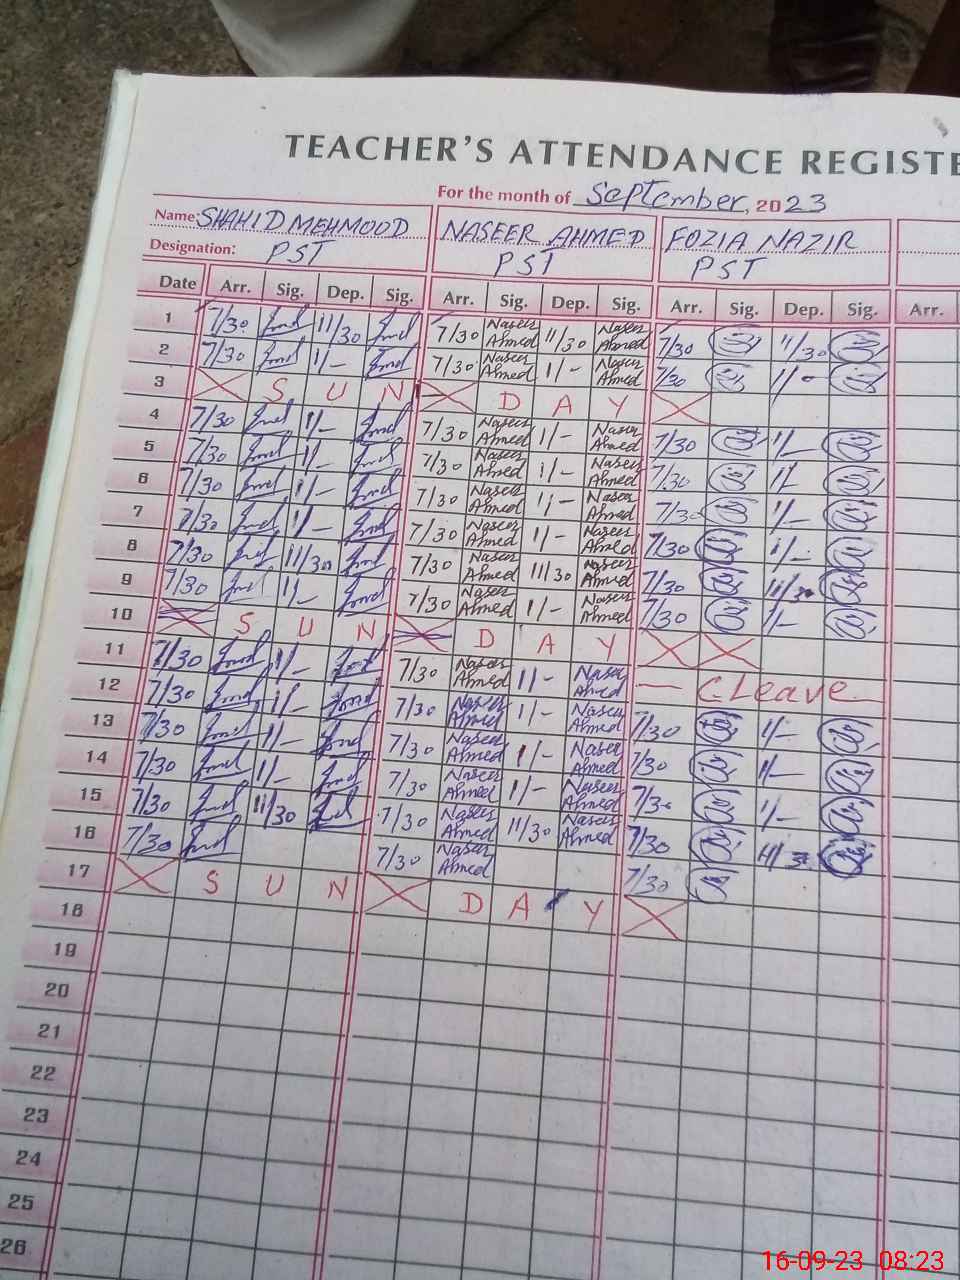 TEACHER'S ATTENDANCE REGISTE
For the month of September, 2023
Name: SHAHID MEHMOOD NASEER AHMED FOZIA NAZIR
Designation: PST PST PST
Date Arr. Sig. Dep. Sig. Arr. Sig. Dep. Sig. Arr. Sig. Dep. Sig. Arr.
1 7/30 11/30 7/30 Naseer Ahmed 11/30 Naseer Ahmed 7/30 11/30
2 7/30 11/- 7/30 Naseer Ahmed 11/- Naseer Ahmed 7/30 11/-
3 S U N D A Y
4 7/30 11/- 7/30 Naseer Ahmed 11/- Naseer Ahmed 7/30 11/-
5 7/30 11/- 7/30 Naseer Ahmed 11/- Naseer Ahmed 7/30 11/-
6 7/30 11/- 7/30 Naseer Ahmed 11/- Naseer Ahmed 7/30 11/-
7 7/30 11/- 7/30 Naseer Ahmed 11/- Naseer Ahmed 7/30 11/-
8 7/30 11/30 7/30 Naseer Ahmed 11/30 Naseer Ahmed 7/30 11/30
9 7/30 11/- 7/30 Naseer Ahmed 11/- Naseer Ahmed 7/30 11/-
10 S U N D A Y
11 7/30 11/- 7/30 Naseer Ahmed 11/- Naseer Ahmed — C.Leave
12 7/30 11/- 7/30 Naseer Ahmed 11/- Naseer Ahmed 7/30 11/-
13 7/30 11/- 7/30 Naseer Ahmed 11/- Naseer Ahmed 7/30 11/-
14 7/30 11/- 7/30 Naseer Ahmed 11/- Naseer Ahmed 7/30 11/-
15 7/30 11/30 7/30 Naseer Ahmed 11/30 Naseer Ahmed 7/30 11/30
16 7/30 7/30 Naseer Ahmed 7/30
17 S U N D A Y
18
19
20
21
22
23
24
25
26
16-09-23 08:23